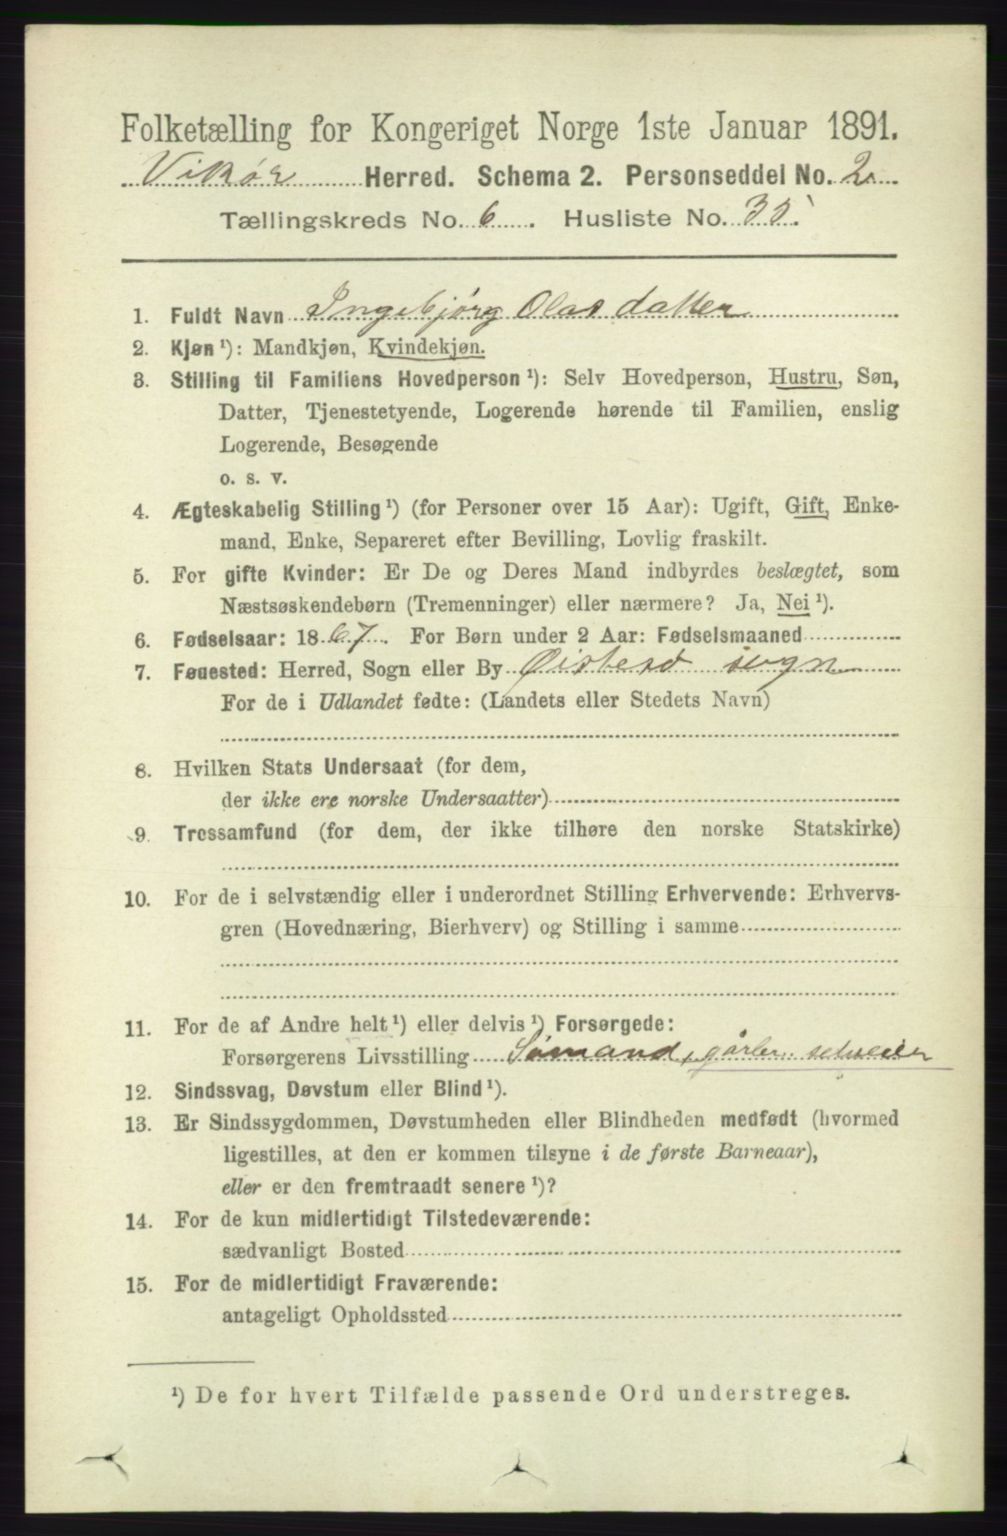 Folketælling for Kongeriget Norge 1ste Januar 1891.
Vikør Herred. Schema 2. Personseddel No. 2.
Tællingskreds No. 6. Husliste No. 35.
1. Fuldt Navn Ingebjørg Olasdatter
2. Kjøn¹): Mandkjøn, Kvindekjøn.
3. Stilling til Familiens Hovedperson¹): Selv Hovedperson, Hustru, Søn,
Datter, Tjenestetyende, Logerende hørende til Familien, enslig
Logerende, Besøgende
o. s. v.
4. Ægteskabelig Stilling¹) (for Personer over 15 Aar): Ugift, Gift, Enke-
mand, Enke, Separeret efter Bevilling, Lovlig fraskilt.
5. For gifte Kvinder: Er De og Deres Mand indbyrdes beslægtet, som
Næstsøskendebørn (Tremenninger) eller nærmere? Ja, Nei¹).
6. Fødselsaar: 1867. For Børn under 2 Aar: Fødselsmaaned
7. Føuested: Herred, Sogn eller By Øistesø sogn
For de i Udlandet fødte: (Landets eller Stedets Navn)
8. Hvilken Stats Undersaat (for dem,
der ikke ere norske Undersaatter)
9. Trossamfund (for dem, der ikke tilhøre den norske Statskirke)
10. For de i selvstændig eller i underordnet Stilling Erhvervende: Erhvervs-
gren (Hovednæring, Bierhverv) og Stilling i samme
11. For de af Andre helt¹) eller delvis¹) Forsørgede:
Forsørgerens Livsstilling Sømand, gårbr. selveier
12. Sindssvag, Døvstum eller Blind¹).
13. Er Sindssygdommen, Døvstumheden eller Blindheden medfødt (hvormed
ligestilles, at den er kommen tilsyne i de første Barneaar),
eller er den fremtraadt senere¹)?
14. For de kun midlertidigt Tilstedeværende:
sædvanligt Bosted
15. For de midlertidigt Fraværende:
antageligt Opholdssted
¹) De for hvert Tilfælde passende Ord understreges.